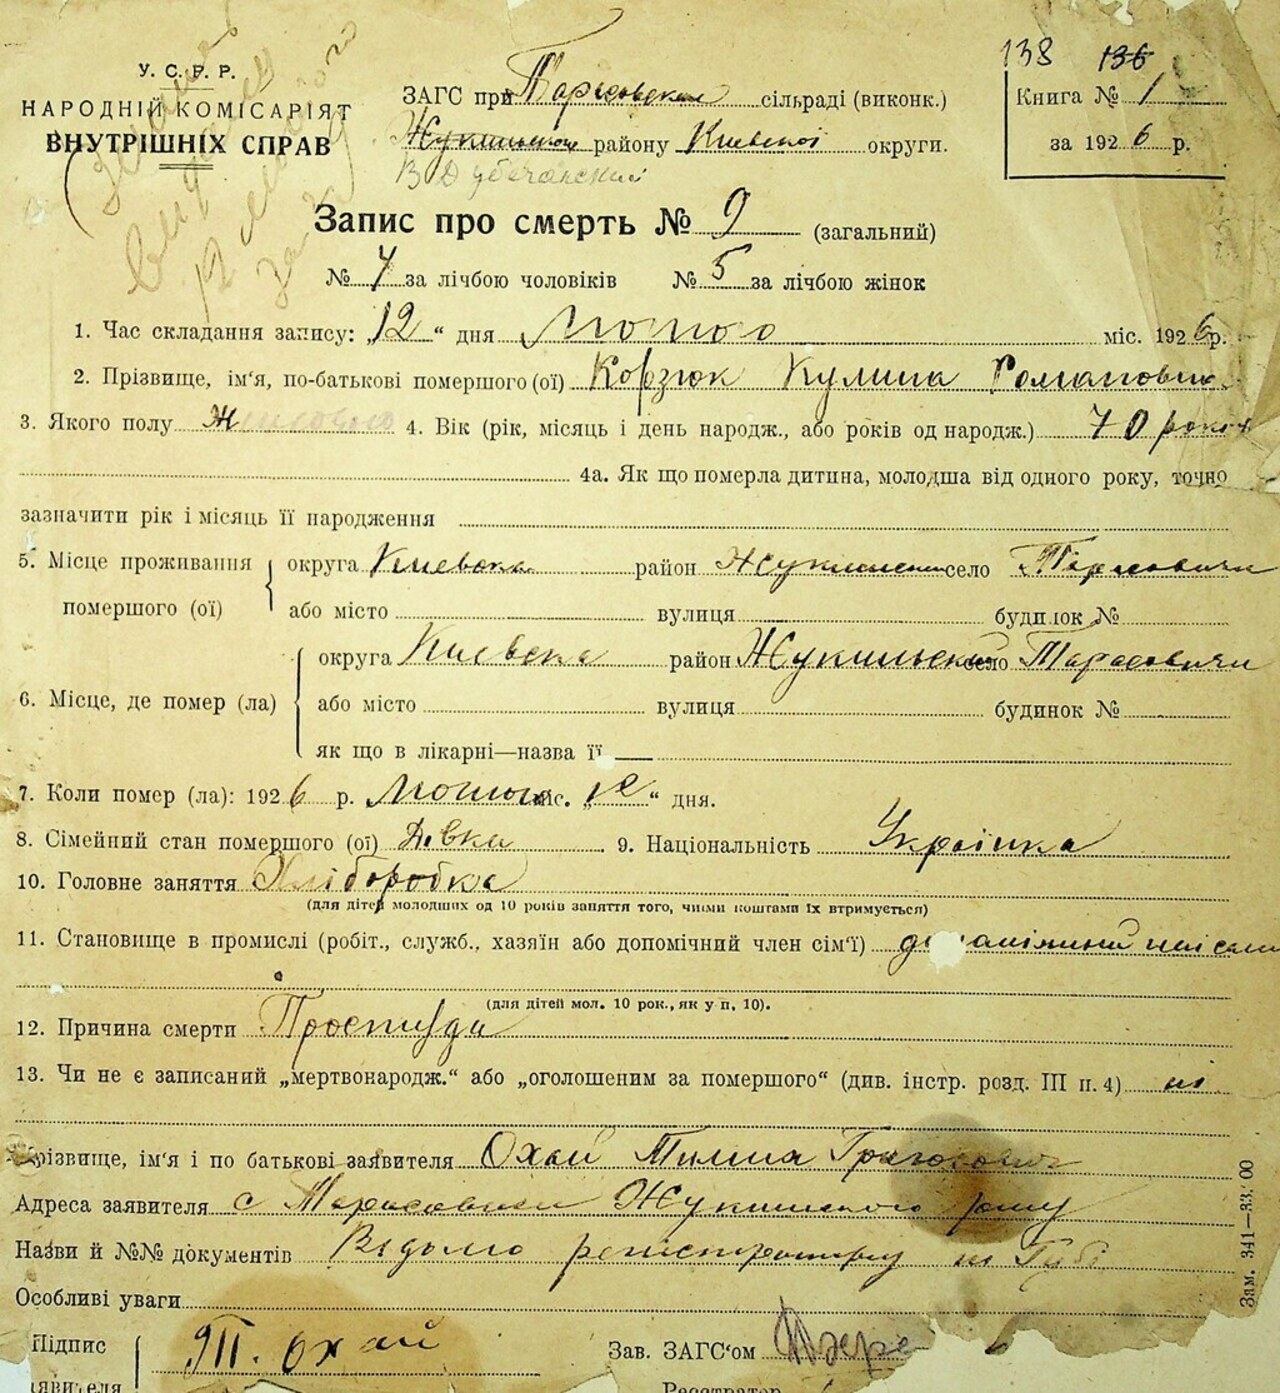 138 136
У. С. Р. Р.
НАРОДНІЙ КОМІСАРІЯТ
ВНУТРІШНІХ СПРАВ
ЗАГС при Тарасовской сільраді (виконк.)
Жукинського району Киевской округи.
В Дубечанский
Книга № 1
за 1926 р.
Запис про смерть № 9 (загальний)
№ 4 за лічбою чоловіків № 5 за лічбою жінок
1. Час складання запису: „12“ дня Лютого міс. 1926 р.
2. Прізвище, ім‘я, по-батькові помершого (ої) Корзюк Кулина Романовна
3. Якого полу Ж 4. Вік (рік, місяць і день народж., або років од народж.) 70 років
4а. Як що померла дитина, молодша від одного року, точно
зазначити рік і місяць її народження
5. Місце проживання помершого (ої) округа Киевска район Жукинский село Тарасовичи
або місто вулиця будинок №
6. Місце, де помер (ла) округа Киевска район Жукинский село Тарасовичи
або місто вулиця будинок №
як що в лікарні—назва її —
7. Коли помер (ла): 1926 р. Лютого міс. „12“ дня.
8. Сімейний стан помершого (ої) Дівка 9. Національність Українка
10. Головне заняття Хліборобка
(для дітей молодших од 10 років заняття того, чиїми коштами їх втримується)
11. Становище в промислі (робіт., служб., хазяїн або допомічний член сім‘ї)
(для дітей мол. 10 рок., як у п. 10).
12. Причина смерти Простуда
13. Чи не є записаний „мертвонародж.“ або „оголошеним за помершого“ (див. інстр. розд. III п. 4) ні
Прізвище, ім‘я і по батькові заявителя Охай Григорович
Адреса заявителя с Тарасовичи Жукинского рону
Назви й №№ документів Відомо
Особливі уваги
Підпис заявителя Охай
Зав. ЗАГС‘ом
Реєстратор
Зам. 341—33.